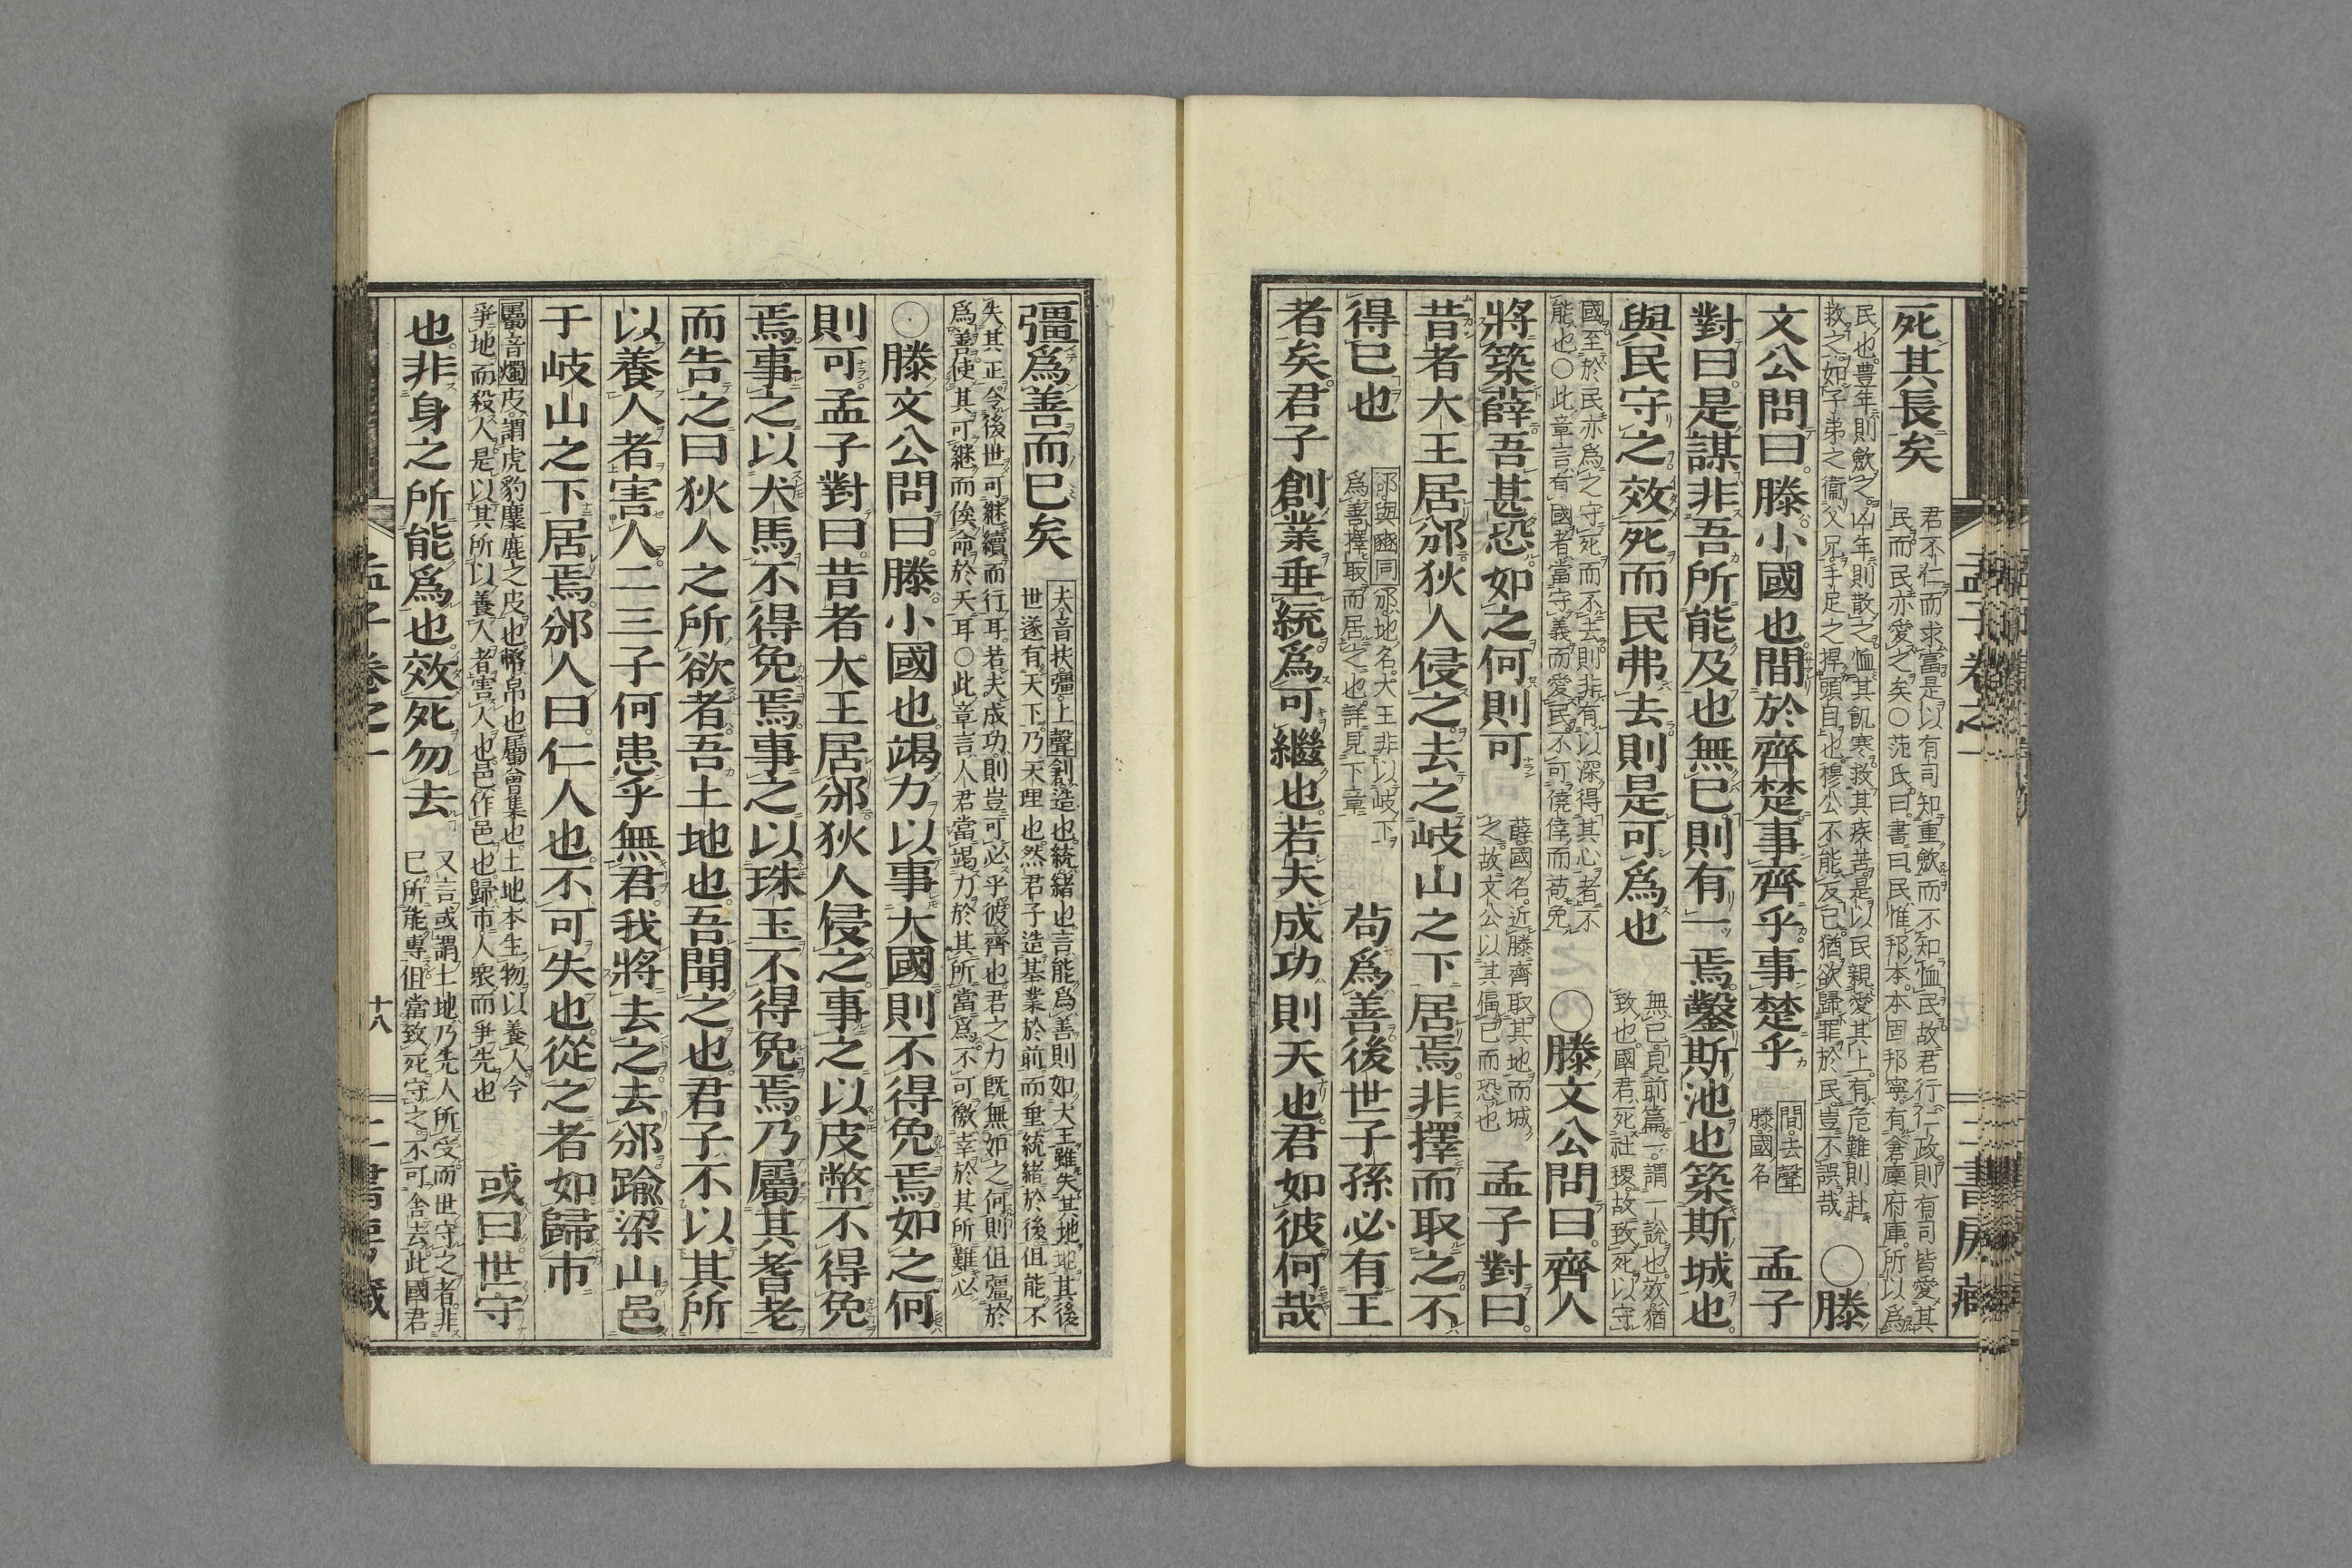 孟子卷之一 二書房藏
死其長矣
君不仁而求富是以有司知重斂而不知恤民故君行仁政則有司皆愛其
民而民亦愛之矣○范氏曰書曰民惟邦本本固邦寧有倉廩府庫所以爲
民也豊年則斂之凶年則散之恤其飢寒救其疾苦是以民親愛其上有危難則赴
救之如子弟之衞父兄手足之捍頭目也穆公不能反已猶欲歸罪於民豈不誤哉
○滕
文公問曰滕小國也間於齊楚事齊乎事楚乎
間去聲
滕國名
孟子
對曰是謀非吾所能及也無已則有一焉鑿斯池也築斯城也
與民守之效死而民弗去則是可爲也
無已見前篇一謂一說也效猶
致也國君死社稷故致死以守
國至於民亦爲之守死而不去則非有以深得其心者不
能也○此章言有國者當守義而愛民不可僥倖而苟免
○滕文公問曰齊人
將築薛吾甚恐如之何則可
薛國名近滕齊取其地而城
之故文公以其偪己而恐也
孟子對曰
昔者大王居邠狄人侵之去之岐山之下居焉非擇而取之不
得已也
邠與豳同邠地名大王非以岐下
爲善擇取而居之也詳見下章
苟爲善後世子孫必有王
者矣君子創業垂統爲可繼也若夫成功則天也君如彼何哉
彊爲善而已矣
夫音扶彊上聲創造也統緒也言能爲善則如大王雖失其地其後
世遂有天下乃天理也然君子造基業於前而垂統緒於後但能不
失其正令後世可継續而行耳若夫成功則豈可必乎彼齊也君之力既無如之何則但彊於
爲善使其可継而俟命於天耳○此章言人君當竭力於其所當爲不可徼幸於其所難必
○滕文公問曰滕小國也竭力以事大國則不得免焉如之何
則可孟子對曰昔者大王居邠狄人侵之事之以皮幣不得免
焉事之以犬馬不得免焉事之以珠玉不得免焉乃屬其耆老
而告之曰狄人之所欲者吾土地也吾聞之也君子不以其所
以養人者害人二三子何患乎無君我將去之去邠踰梁山邑
于岐山之下居焉邠人曰仁人也不可失也從之者如歸市
屬音燭皮謂虎豹麋鹿之皮也幣帛也屬會集也土地本生物以養人今
爭地而殺人是以其所以養人者害人也邑作邑也歸市人衆而爭先也
或曰世守
也非身之所能爲也效死勿去
又言或謂土地乃先人所受而世守之者非
己所能專但當致死守之不可舍去此國君
孟子卷之一 十八